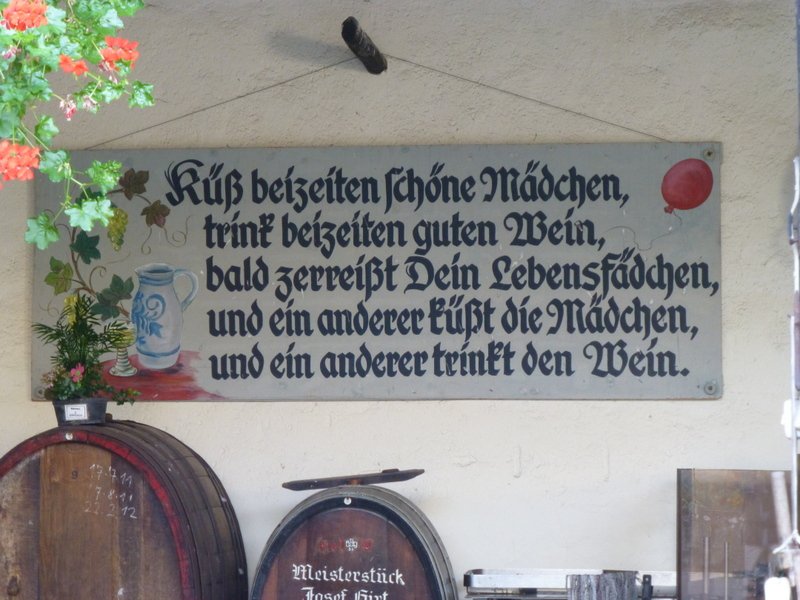 Küß beizeiten schöne Mädchen,
trink beizeiten guten Wein,
bald zerreißt Dein Lebensfädchen,
und ein anderer küßt die Mädchen,
und ein anderer trinkt den Wein.
Meisterstück
Josef Hirt